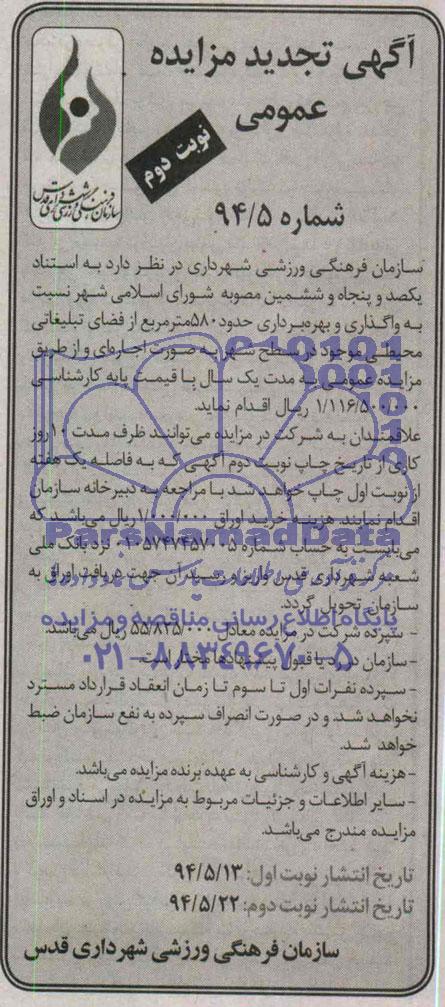 آگهی تجدید مزایده
عمومی
نوبت دوم
شماره ۹۴/۵
سازمان فرهنگی ورزشی شهرداری قدس
سازمان فرهنگی ورزشی شهرداری در نظر دارد به استناد
یکصد و پنجاه و ششمین مصوبه شورای اسلامی شهر نسبت
به واگذاری و بهره‌برداری حدود ۵۸۰مترمربع از فضای تبلیغاتی
محیطی موجود در سطح شهر به صورت اجاره‌ای و از طریق
مزایده عمومی به مدت یک سال با قیمت پایه کارشناسی
۱/۱۱۶/۵۰۰/۰۰۰ ریال اقدام نماید.
علاقمندان به شرکت در مزایده می‌توانند ظرف مدت ۱۰ روز
کاری از تاریخ چاپ نوبت دوم آگهی که به فاصله یک هفته
از نوبت اول چاپ خواهد شد با مراجعه به دبیرخانه سازمان
اقدام نمایند. هزینه خرید اوراق ۱/۰۰۰/۰۰۰ ریال می‌باشد که
می‌بایست به حساب شماره ۰۱۰۵۷۴۷۴۵۷۰۰۵ نزد بانک ملی
شعبه شهرداری قدس واریز و رسید آن جهت دریافت اوراق به
سازمان تحویل گردد.
- سپرده شرکت در مزایده معادل ۵۵/۸۲۵/۰۰۰ ریال می‌باشد.
- سازمان در رد یا قبول پیشنهادها مختار است.
- سپرده نفرات اول تا سوم تا زمان انعقاد قرارداد مسترد
نخواهد شد. و در صورت انصراف سپرده به نفع سازمان ضبط
خواهد شد.
- هزینه آگهی و کارشناسی به عهده برنده مزایده می‌باشد.
- سایر اطلاعات و جزئیات مربوط به مزایده در اسناد و اوراق
مزایده مندرج می‌باشد.
تاریخ انتشار نوبت اول: ۹۴/۵/۱۳
تاریخ انتشار نوبت دوم: ۹۴/۵/۲۲
سازمان فرهنگی ورزشی شهرداری قدس
ParsNamadData
پایگاه اطلاع رسانی مناقصه و مزایده
۰۲۱-۸۸۳۴۹۶۷۰-۵